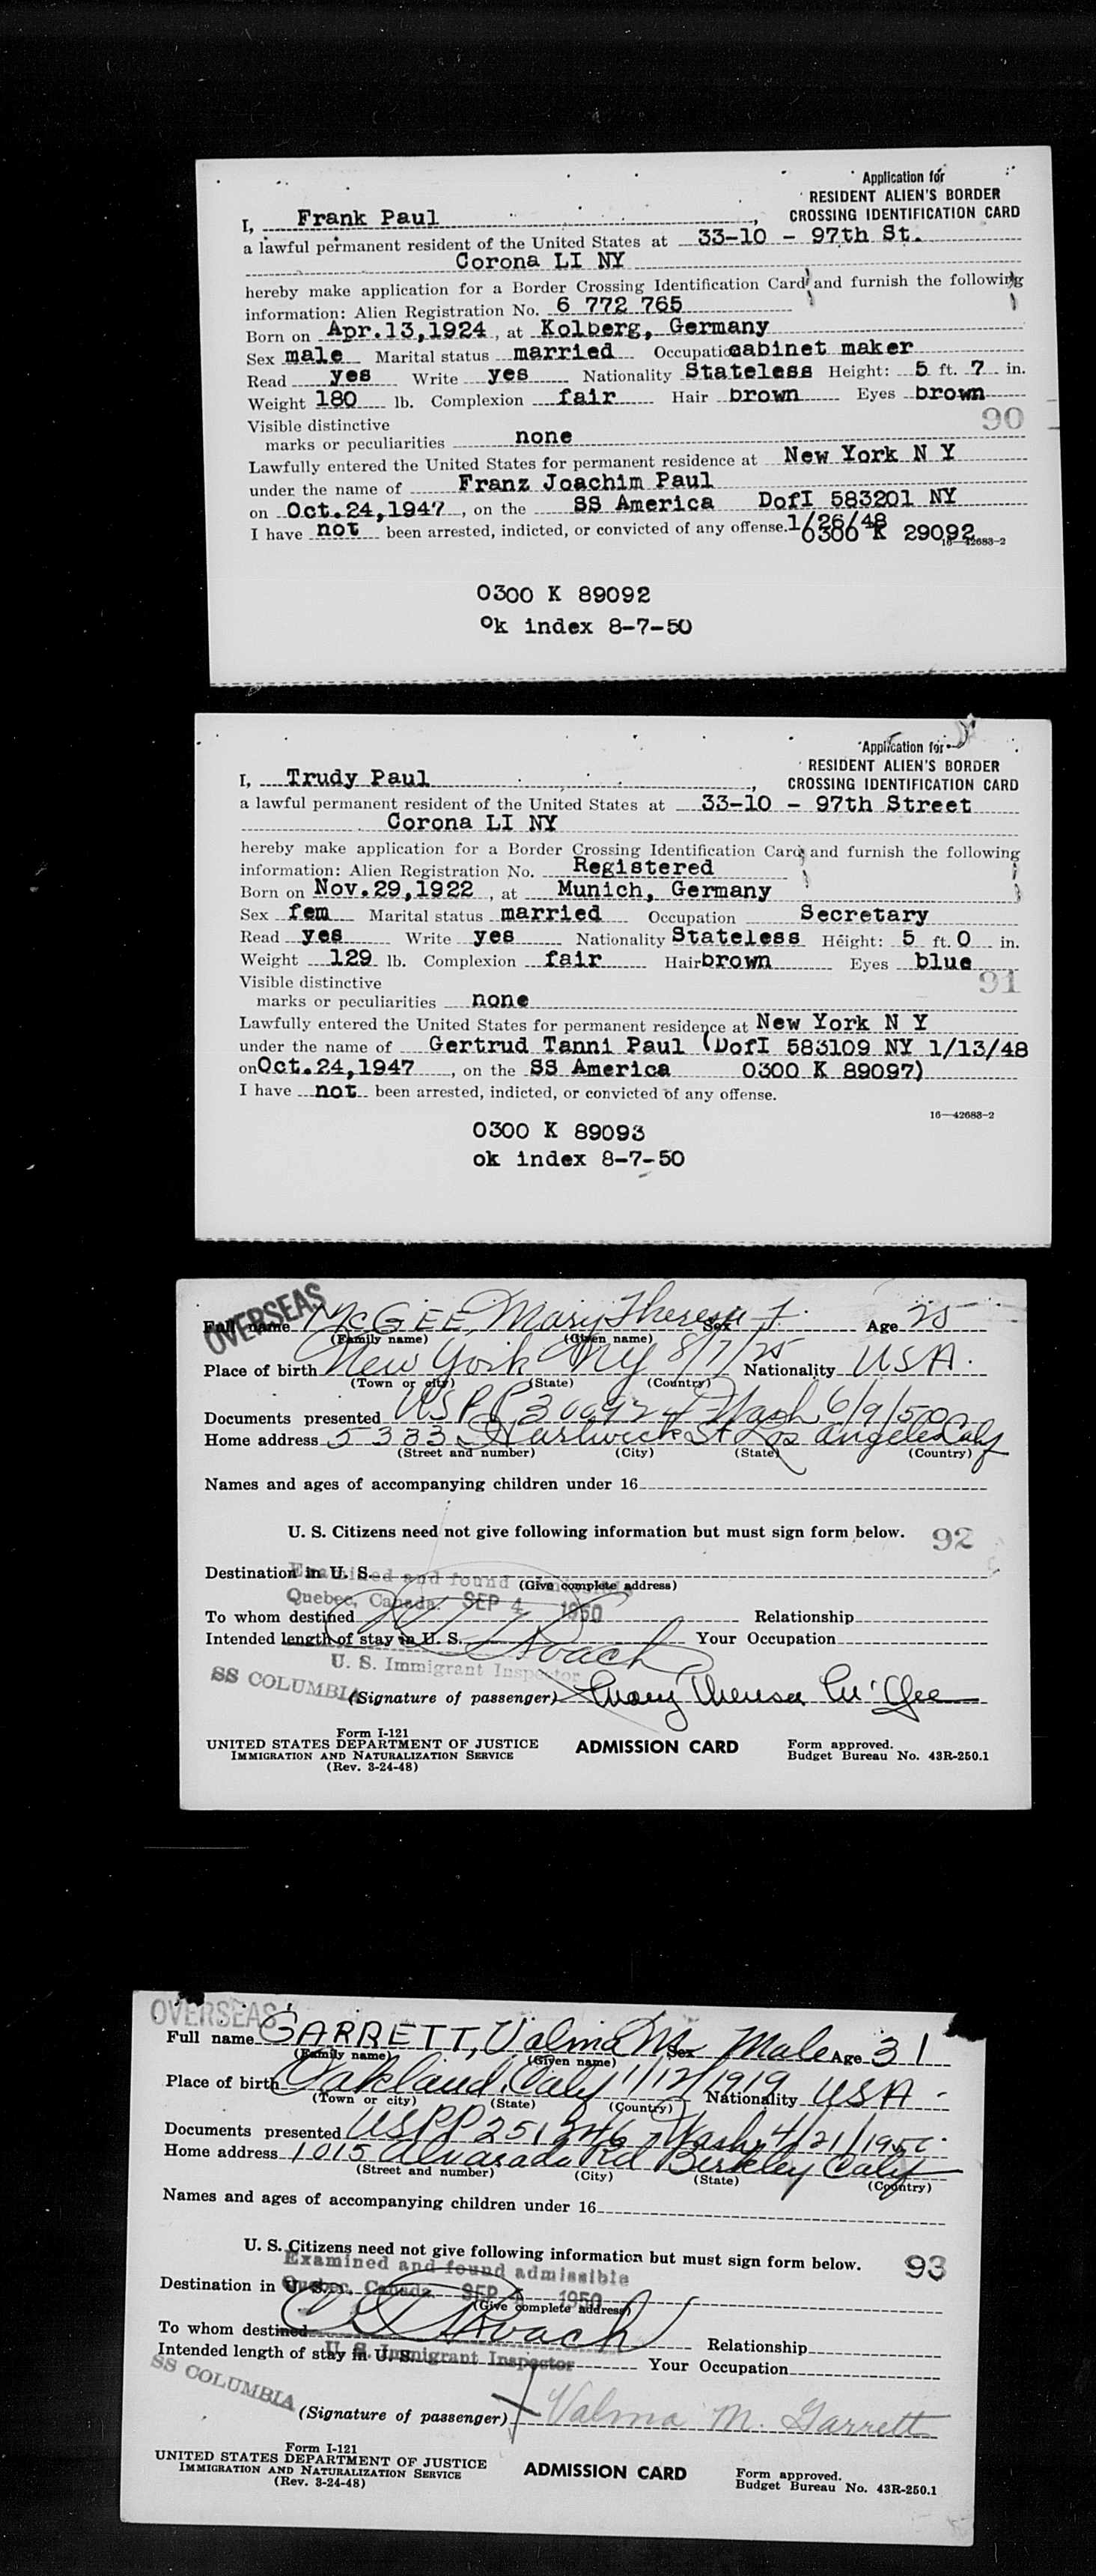 Application for
RESIDENT ALIEN'S BORDER
CROSSING IDENTIFICATION CARD
I, Frank Paul,
a lawful permanent resident of the United States at 33-10 - 97th St.
Corona LI NY
hereby make application for a Border Crossing Identification Card and furnish the following
information: Alien Registration No. 6 772 765
Born on Apr.13,1924, at Kolberg, Germany
Sex male Marital status married Occupation cabinet maker
Read yes Write yes Nationality Stateless Height: 5 ft. 7 in.
Weight 180 lb. Complexion fair Hair brown Eyes brown
90
Visible distinctive
marks or peculiarities none
Lawfully entered the United States for permanent residence at New York N Y
under the name of Franz Joachim Paul
on Oct.24,1947, on the SS America DofI 583201 NY
I have not been arrested, indicted, or convicted of any offense. 1/26/48
0300 K 29092
16—42683-2
0300 K 89092
Ok index 8-7-50
Application for
RESIDENT ALIEN'S BORDER
CROSSING IDENTIFICATION CARD
I, Trudy Paul,
a lawful permanent resident of the United States at 33-10 - 97th Street
Corona LI NY
hereby make application for a Border Crossing Identification Card and furnish the following
information: Alien Registration No. Registered
Born on Nov.29,1922, at Munich, Germany
Sex fem Marital status married Occupation Secretary
Read yes Write yes Nationality Stateless Height: 5 ft. 0 in.
Weight 129 lb. Complexion fair Hair brown Eyes blue
91
Visible distinctive
marks or peculiarities none
Lawfully entered the United States for permanent residence at New York N Y
under the name of Gertrud Tanni Paul (DofI 583109 NY 1/13/48
on Oct.24,1947, on the SS America 0300 K 89097)
I have not been arrested, indicted, or convicted of any offense.
16—42683-2
0300 K 89093
ok index 8-7-50
OVERSEAS
Full name McGEE, Mary Theresa Sex f. Age 25
(Family name) (Given name)
Place of birth New York NY 8/7/25 Nationality USA.
(Town or city) (State) (Country)
Documents presented USPP 300924 Wash 6/9/50
Home address 5333 St Los Angeles Calif
(Street and number) (City) (State) (Country)
Names and ages of accompanying children under 16
U. S. Citizens need not give following information but must sign form below.
92
Destination in U. S.
Examined and found admissible
(Give complete address)
Quebec, Canada. SEP 4 1950
To whom destined Relationship
Intended length of stay in U. S. Your Occupation
Roach
U. S. Immigrant Inspector
SS COLUMBIA
(Signature of passenger) Mary Theresa McGee
Form I-121
UNITED STATES DEPARTMENT OF JUSTICE
IMMIGRATION AND NATURALIZATION SERVICE
(Rev. 3-24-48)
ADMISSION CARD
Form approved.
Budget Bureau No. 43R-250.1
OVERSEAS
Full name GARRETT, Valma M. Sex Male Age 31
(Family name) (Given name)
Place of birth Oakland, Calif 1/12/1919 Nationality USA -
(Town or city) (State) (Country)
Documents presented USPP 251346 Wash. 4/21/1950.
Home address 1015 Alvarado Rd Berkley Calif
(Street and number) (City) (State) (Country)
Names and ages of accompanying children under 16
U. S. Citizens need not give following information but must sign form below.
93
Examined and found admissible
Destination in U. S.
Quebec, Canada. SEP 4 1950
(Give complete address)
Roach
To whom destined Relationship
Intended length of stay in U. S. Your Occupation
U. S. Immigrant Inspector
SS COLUMBIA
(Signature of passenger) Valma M. Garrett
Form I-121
UNITED STATES DEPARTMENT OF JUSTICE
IMMIGRATION AND NATURALIZATION SERVICE
(Rev. 3-24-48)
ADMISSION CARD
Form approved.
Budget Bureau No. 43R-250.1